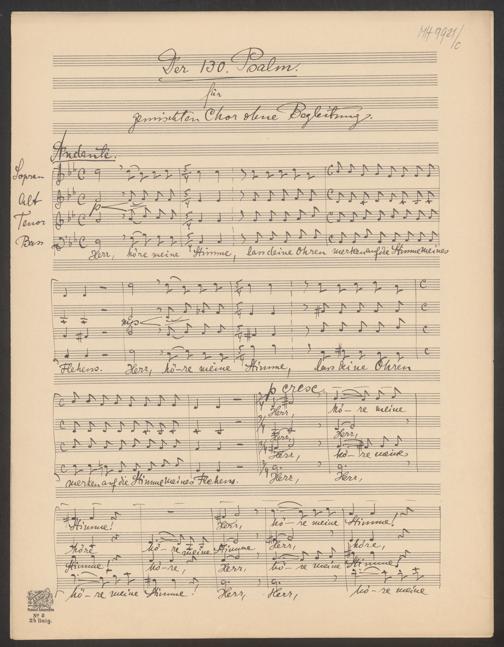 MH 9921/c
Der 130. Psalm.
für
gemischten Chor ohne Begleitung.
Andante.
Sopran
Alt
Tenor
Bass
p
Herr, höre meine Stimme, lass deine Ohren merken auf die Stimme meines
mf
Flehens. Herr, hö-re meine Stimme, lass deine Ohren
p cresc.
Herr, hö-re meine
Herr, Herr,
Herr, hö-re meine
merken auf die Stimme meines Flehens. Herr, Herr,
Stimme! Herr, hö-re meine Stimme!
höre hö-re meine Stimme Herr, höre,
Stimme! hö-re, Herr, hö-re meine Stimme!
hö-re meine Stimme! Herr, Herr, hö-re meine
No 2
24 linig.